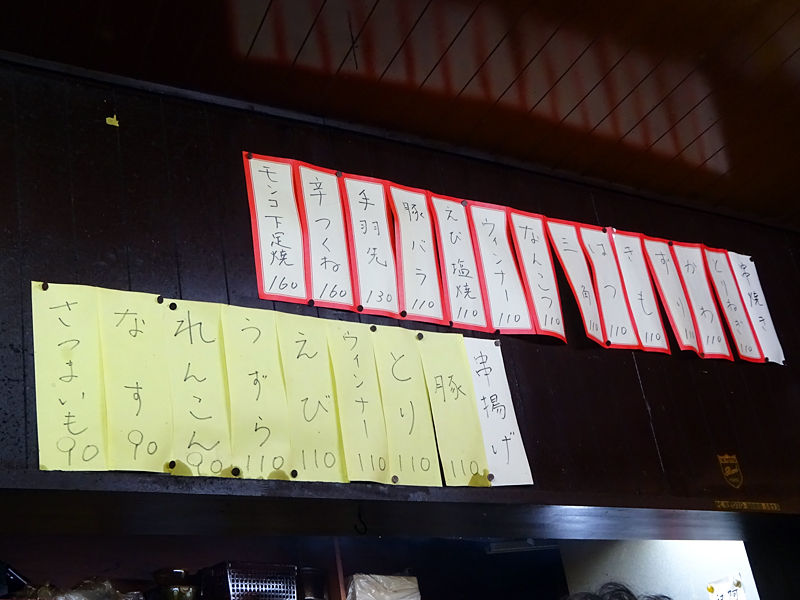 串焼き
とりねぎ 110
かわ 110
ずり 110
きも 110
はつ 110
三角 110
なんこつ 110
ウィンナー 110
えび塩焼 110
豚バラ 110
手羽先 130
辛つくね 160
モンゴ下足焼 160
串揚げ
豚 110
とり 110
ウィンナー 110
えび 110
うずら 110
れんこん 90
なす 90
さつまいも 90